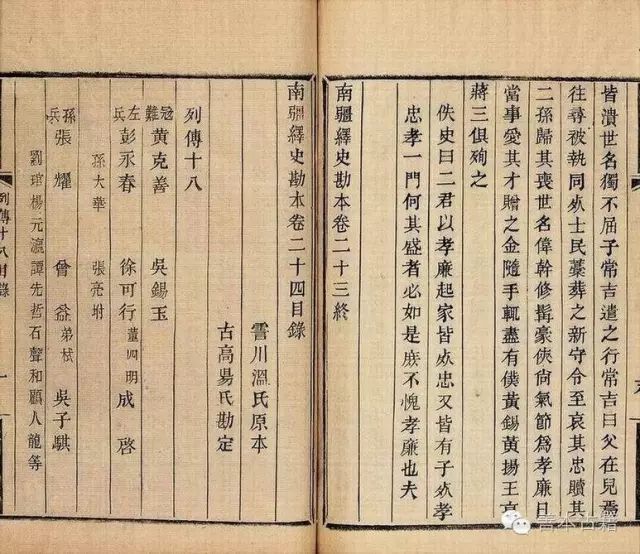 皆潰世名獨不屈子常吉遣之行常吉曰父在兒焉
往尋被執同死士民藁葬之新守令至哀其忠贖其
二孫歸其喪世名偉幹修髯豪俠尙氣節爲孝廉日
當事愛其才贈之金隨手輒盡有僕黃錫黃揚王亮
蔣三俱殉之
佚史曰二君以孝廉起家皆死忠又皆有子死孝
忠孝一門何其盛者必如是庶不愧孝廉也夫
南疆繹史勘本卷二十三終
南疆繹史勘本卷二十四目錄
霅川溫氏原本
古高昜氏勘定
列傳十八
冠難 黃克善 吳錫玉
左兵 彭永春 徐可行 董四明 成啓
孫大華 張亮坿
孫兵 張耀 曾益 弟栻 吳子騏
劉琯楊元瀛譚先哲石聲和顧人龍等
列傳十八目錄
一
善本古籍